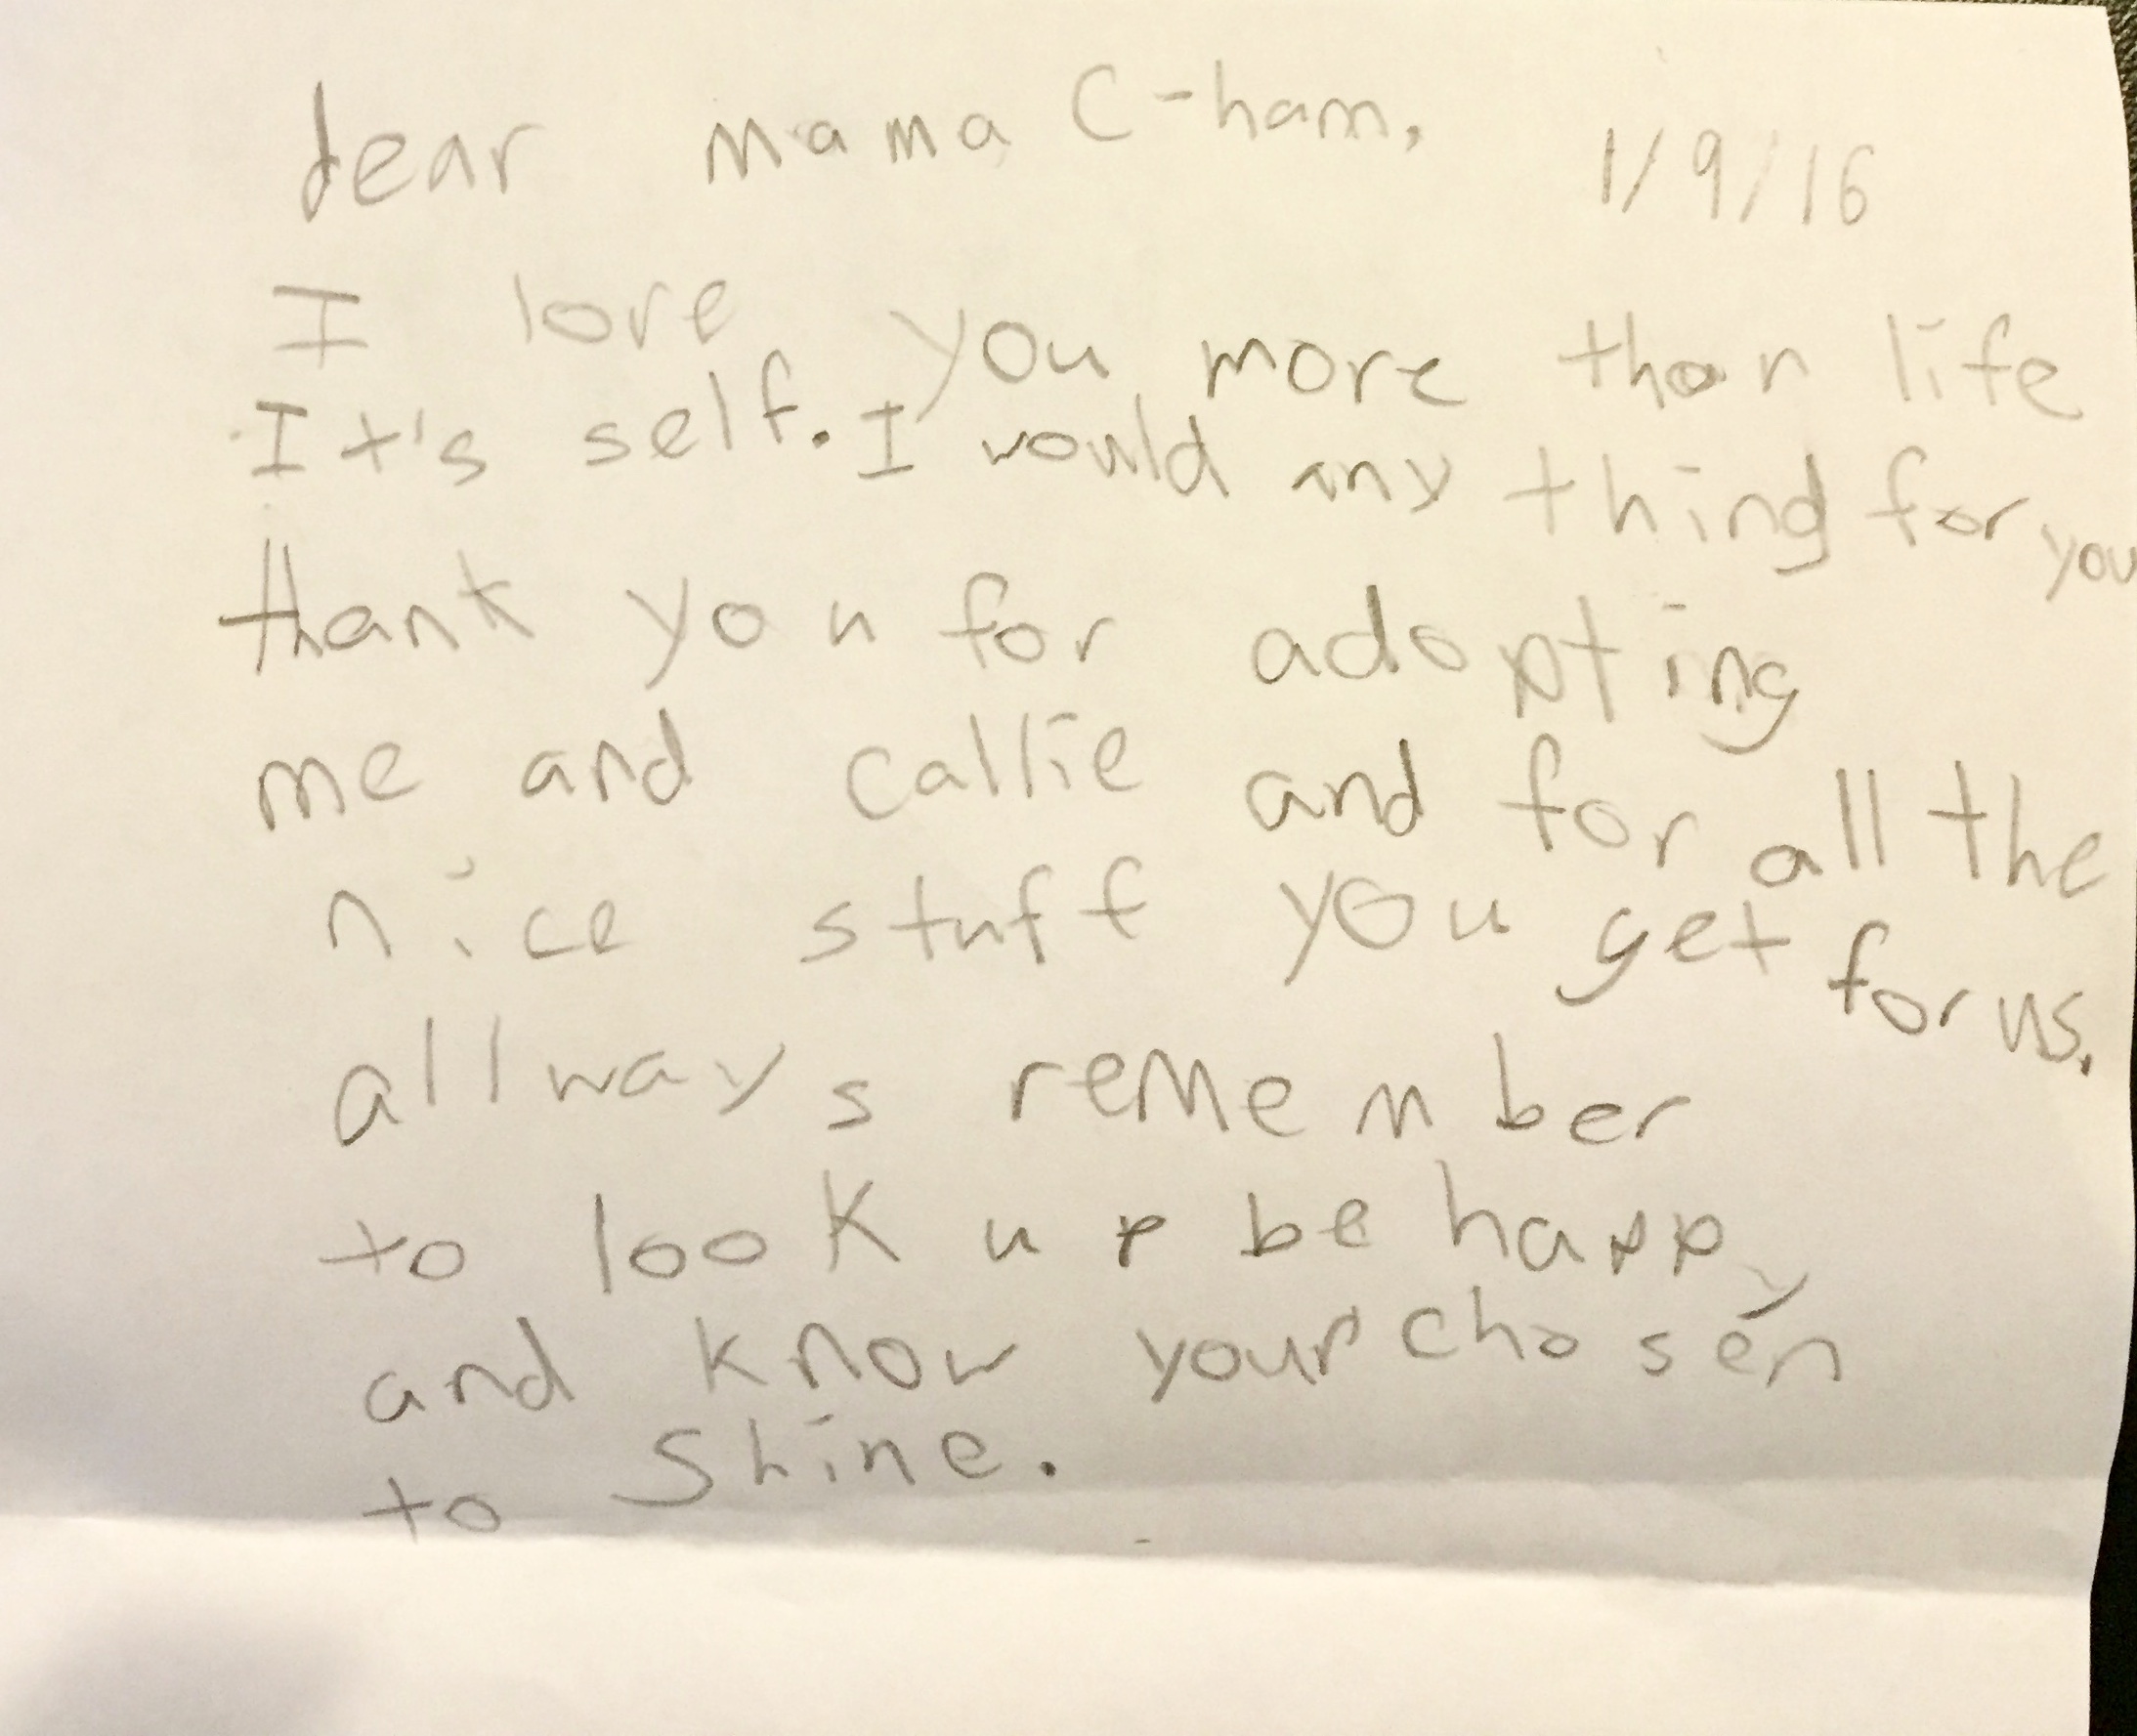 dear mama C-ham, 1/9/16
I love you more than life
It's self. I would any thing for you
thank you for adopting
me and callie and for all the
nice stuff you get for us.
allways remember
to look up be happy
and know your chosen
to shine.